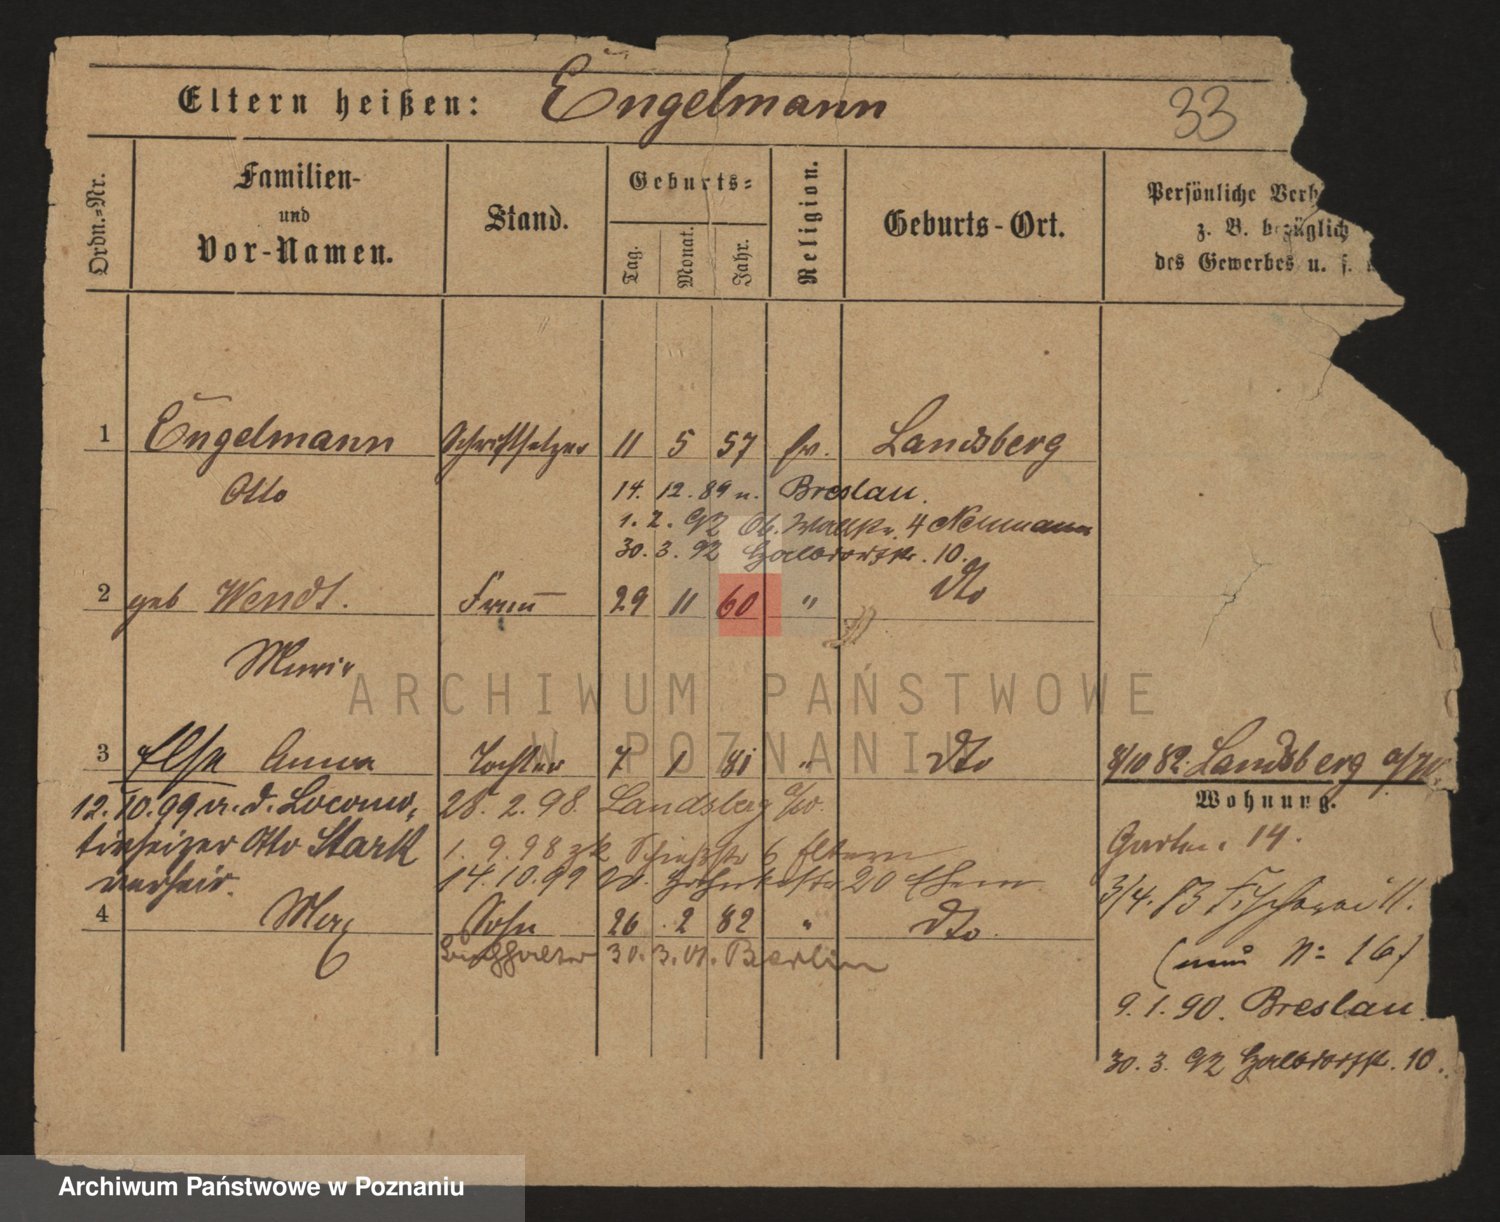 Eltern heißen: Engelmann
33
Ordn.=Nr.
Familien-
und
Vor-Namen.
Stand.
Geburts=
Tag.
Monat.
Jahr.
Religion.
Geburts-Ort.
Persönliche Verh
z. B. bezüglich
des Gewerbes u. s.
1 Engelmann Schriftsetzer 11 5 57 ev. Landsberg
Otto
14. 12. 89 n. Breslau.
1. 2. 92 4 Neumann
30. 3. 92 10.
2 geb Wendt. Frau 29 11 60 " dto
Marie
ARCHIWUM PAŃSTWOWE
W POZNANIU
3 Else Anna Tochter 7 1 81 " dto
8/10 82. Landsberg a/W.
12. 10. 99 v. d. Locomo-
tivheizer Otto Stark
verheir.
28. 2. 98 Landsberg a/W.
1. 9. 98 zk Schießstr 6 Eltern
14. 10. 99 20 Ehem
4 Max Sohn 26 2 82 " dto.
Buchhalter 30. 3. 01. Berlin
Wohnung.
Garten. 14.
3/4. 83 Fischerei 11.
(neu No 16)
9. 1. 90. Breslau.
30. 3. 92 10.
Archiwum Państwowe w Poznaniu